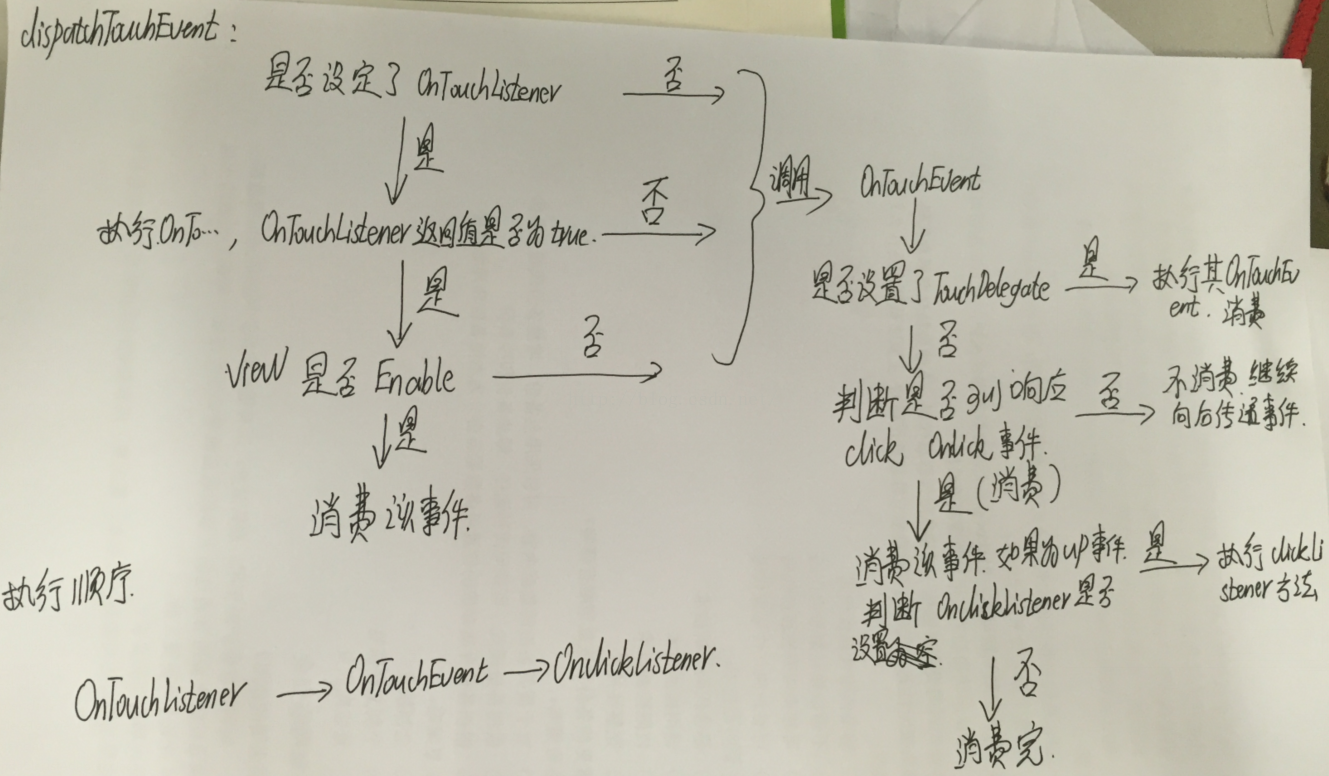 dispatchTouchEvent:
是否设定了 OnTouchListener
否
是
执行OnTo…, OnTouchListener返回值是否为true.
否
是
View 是否 Enable
否
是
消费该事件.
调用
OnTouchEvent
是否设置了TouchDelegate
是
执行其OnTouchEv
ent. 消费
否
判断是否可以响应
click, Onlick事件.
否
不消费.继续
向后传递事件.
是(消费)
消费该事件.如果为up事件.
判断 OnclickListener是否
设置
是
执行clickLi
stener方法
否
消费完.
执行顺序.
OnTouchListener
OnTouchEvent
OnclickListener.